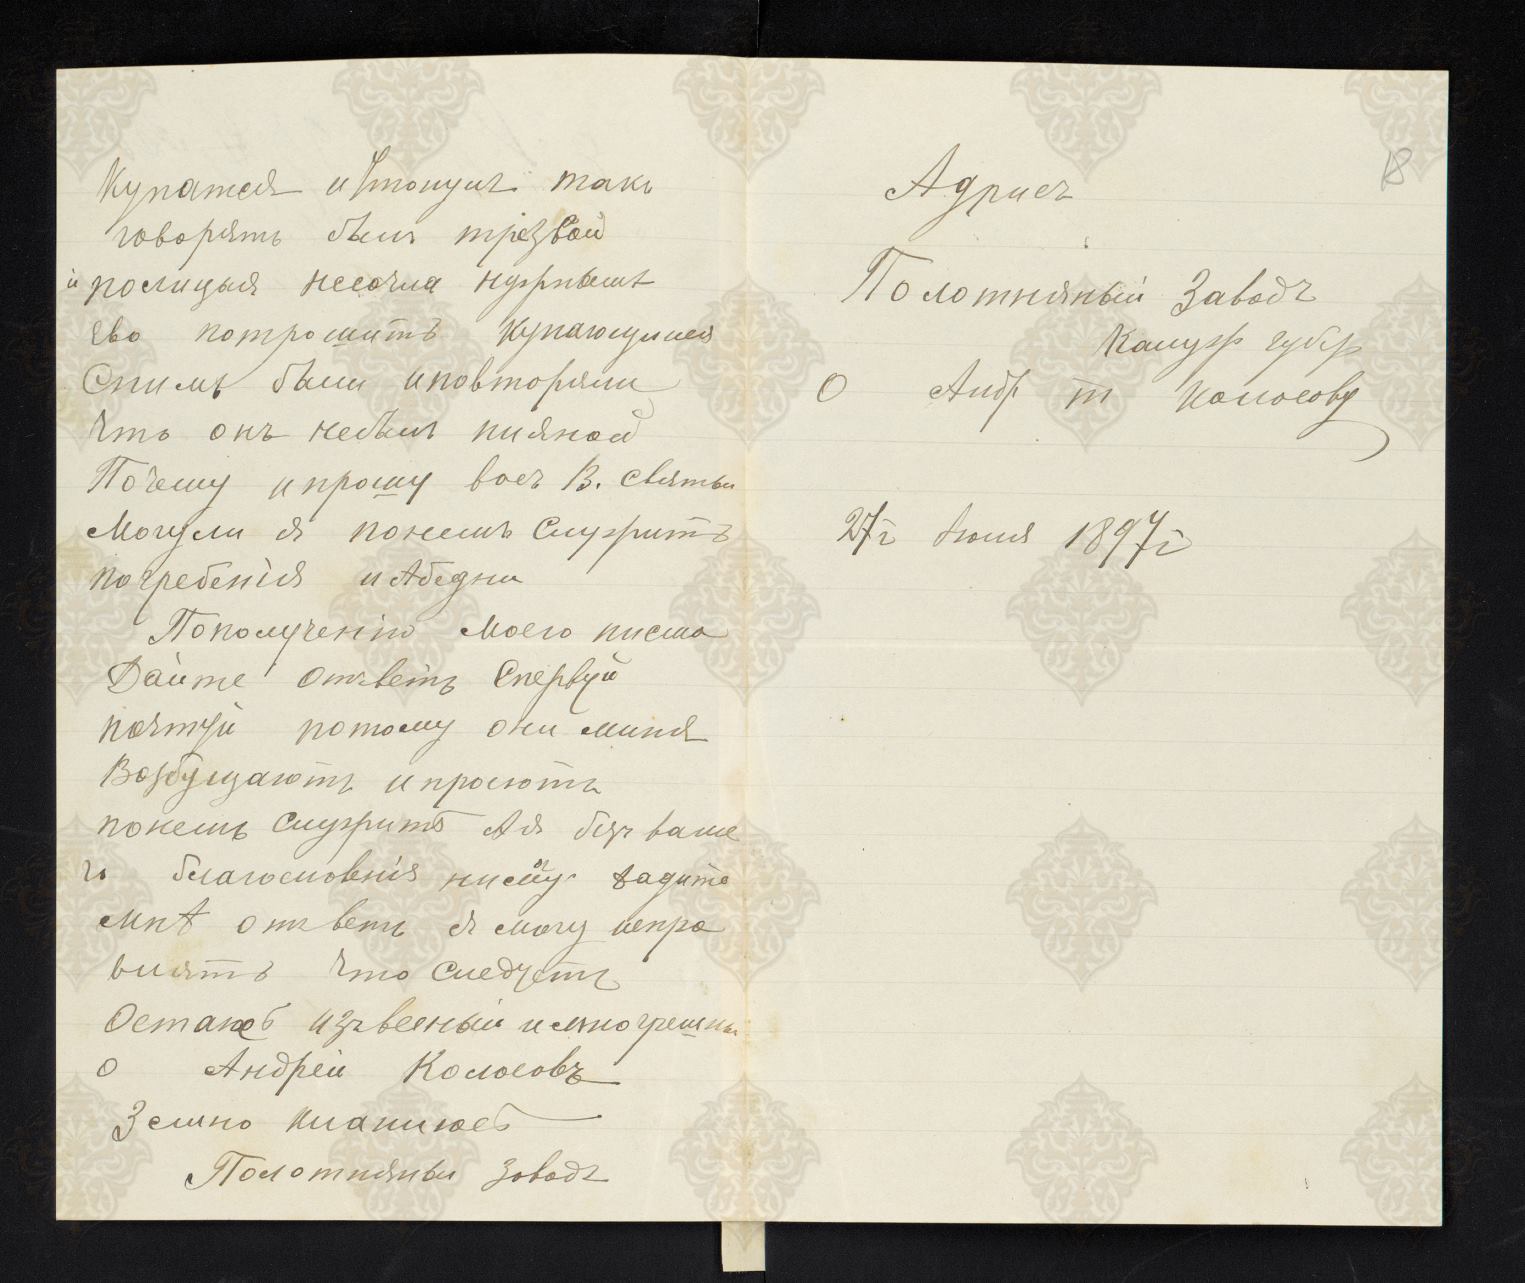 Купатся и Утонулъ такъ
говорять былъ трезвой
и полицыя несочла нужнымъ
ево потрошить купающшися
Снимъ были иповторяли
Что онъ небылъ пияной
Почему ипрошу васъ В. святы
Могули я понемъ Служить
погребенія и Абедни
Пополученію моего писма
Дайте отъветъ Спервуй
почтуй потому они миня
Возбущають ипросють
понемъ служить Ая безъ ваше
го благословнія нисмѣу дадите
мнѣ отъветъ я могу испра
влять что следуеть
Остаюсь изъвесный и многрешны
О Андрей Колосовъ
Земно кланиюсь
Полотняны Заводъ
18
Адрисъ
Полотняный Заводъ
Калуж губер
О Андр т Колосову
27г Июля 1897г